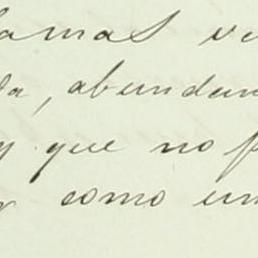 lamas ve
da, abundan
y que no p
y como un